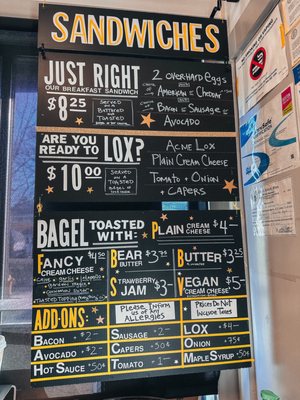 SANDWICHES
JUST RIGHT
OUR BREAKFAST SANDWICH
$8 25
SERVED ON A BUTTERED TOASTED
2 OVERHARD EGGS
AMERICAN = CHEDDAR
BACON = SAUSAGE
AVOCADO
ARE YOU
READY TO LOX?
$10 00
SERVED ON A TOASTED
ACME LOX
PLAIN CREAM CHEESE
TOMATO + ONION
+ CAPERS
BAGEL TOASTED WITH:
PLAIN CREAM CHEESE $4-
FANCY CREAM CHEESE $4 50
BEAR BUTTER $3 75
BUTTER $3 25
STRAWBERRY JAM $3-
VEGAN CREAM CHEESE $5-
ADD-ONS:
PLEASE INFORM US OF ANY ALLERGIES
PRICES DO NOT INCLUDE TAX
BACON $2-
SAUSAGE $2-
LOX $4-
AVOCADO $2-
CAPERS 50¢
ONION 50¢
HOT SAUCE 50¢
TOMATO $1-
MAPLE SYRUP 50¢